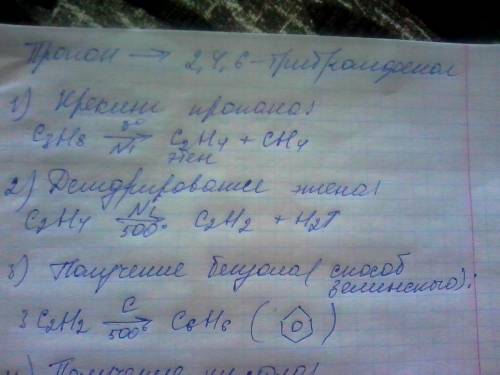 Пропан → 2,4,6-трибромфенол
1) Крекинг пропана:
C3H8 t°→Ni C2H4 + CH4
этен
2) Дегидрирование этена:
C2H4 Ni→500° C2H2 + H2↑
3) Получение бензола (способ
Зелинского):
3C2H2 C→500° C6H6 ( )